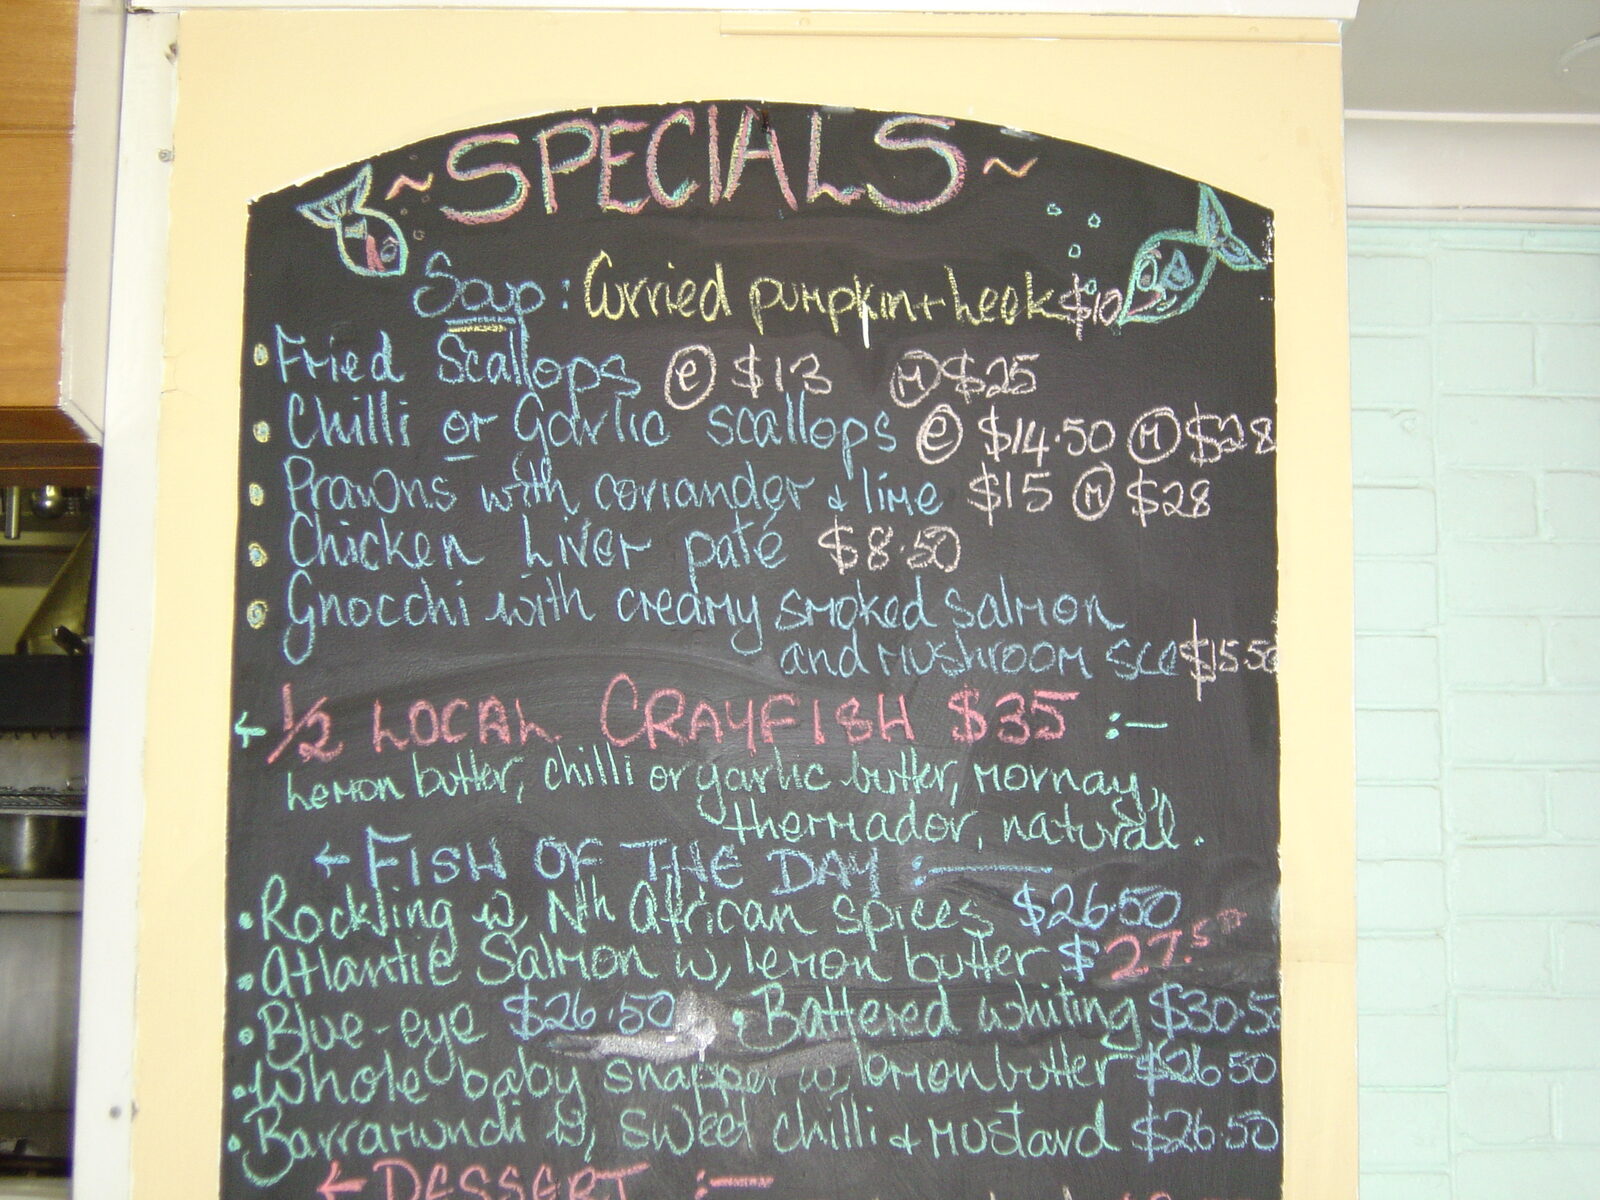 ~ SPECIALS ~
Soup : Curried pumpkin + Leek $10
• Fried Scallops (e) $13 (M) $25
• Chilli or Garlic scallops (e) $14.50 (M) $28
• Prawns with coriander & lime $15 (M) $28
• Chicken Liver paté $8.50
• Gnocchi with creamy smoked salmon
and mushroom sce $15.50
← 1/2 LOCAL CRAYFISH $35 :-
Lemon butter, chilli or garlic butter, mornay,
thermador, natural.
← FISH OF THE DAY :-
• Rockling w, Nth African spices $26.50
• Atlantic Salmon w, lemon butter $27.50
• Blue-eye $26.50 • Battered whiting $30.50
• Whole baby snapper w, lemon butter $26.50
• Barramundi w, sweet chilli & mustard $26.50
← DESSERT :-